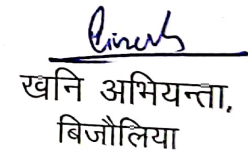 खनि अभियन्ता,
बिजौलिया